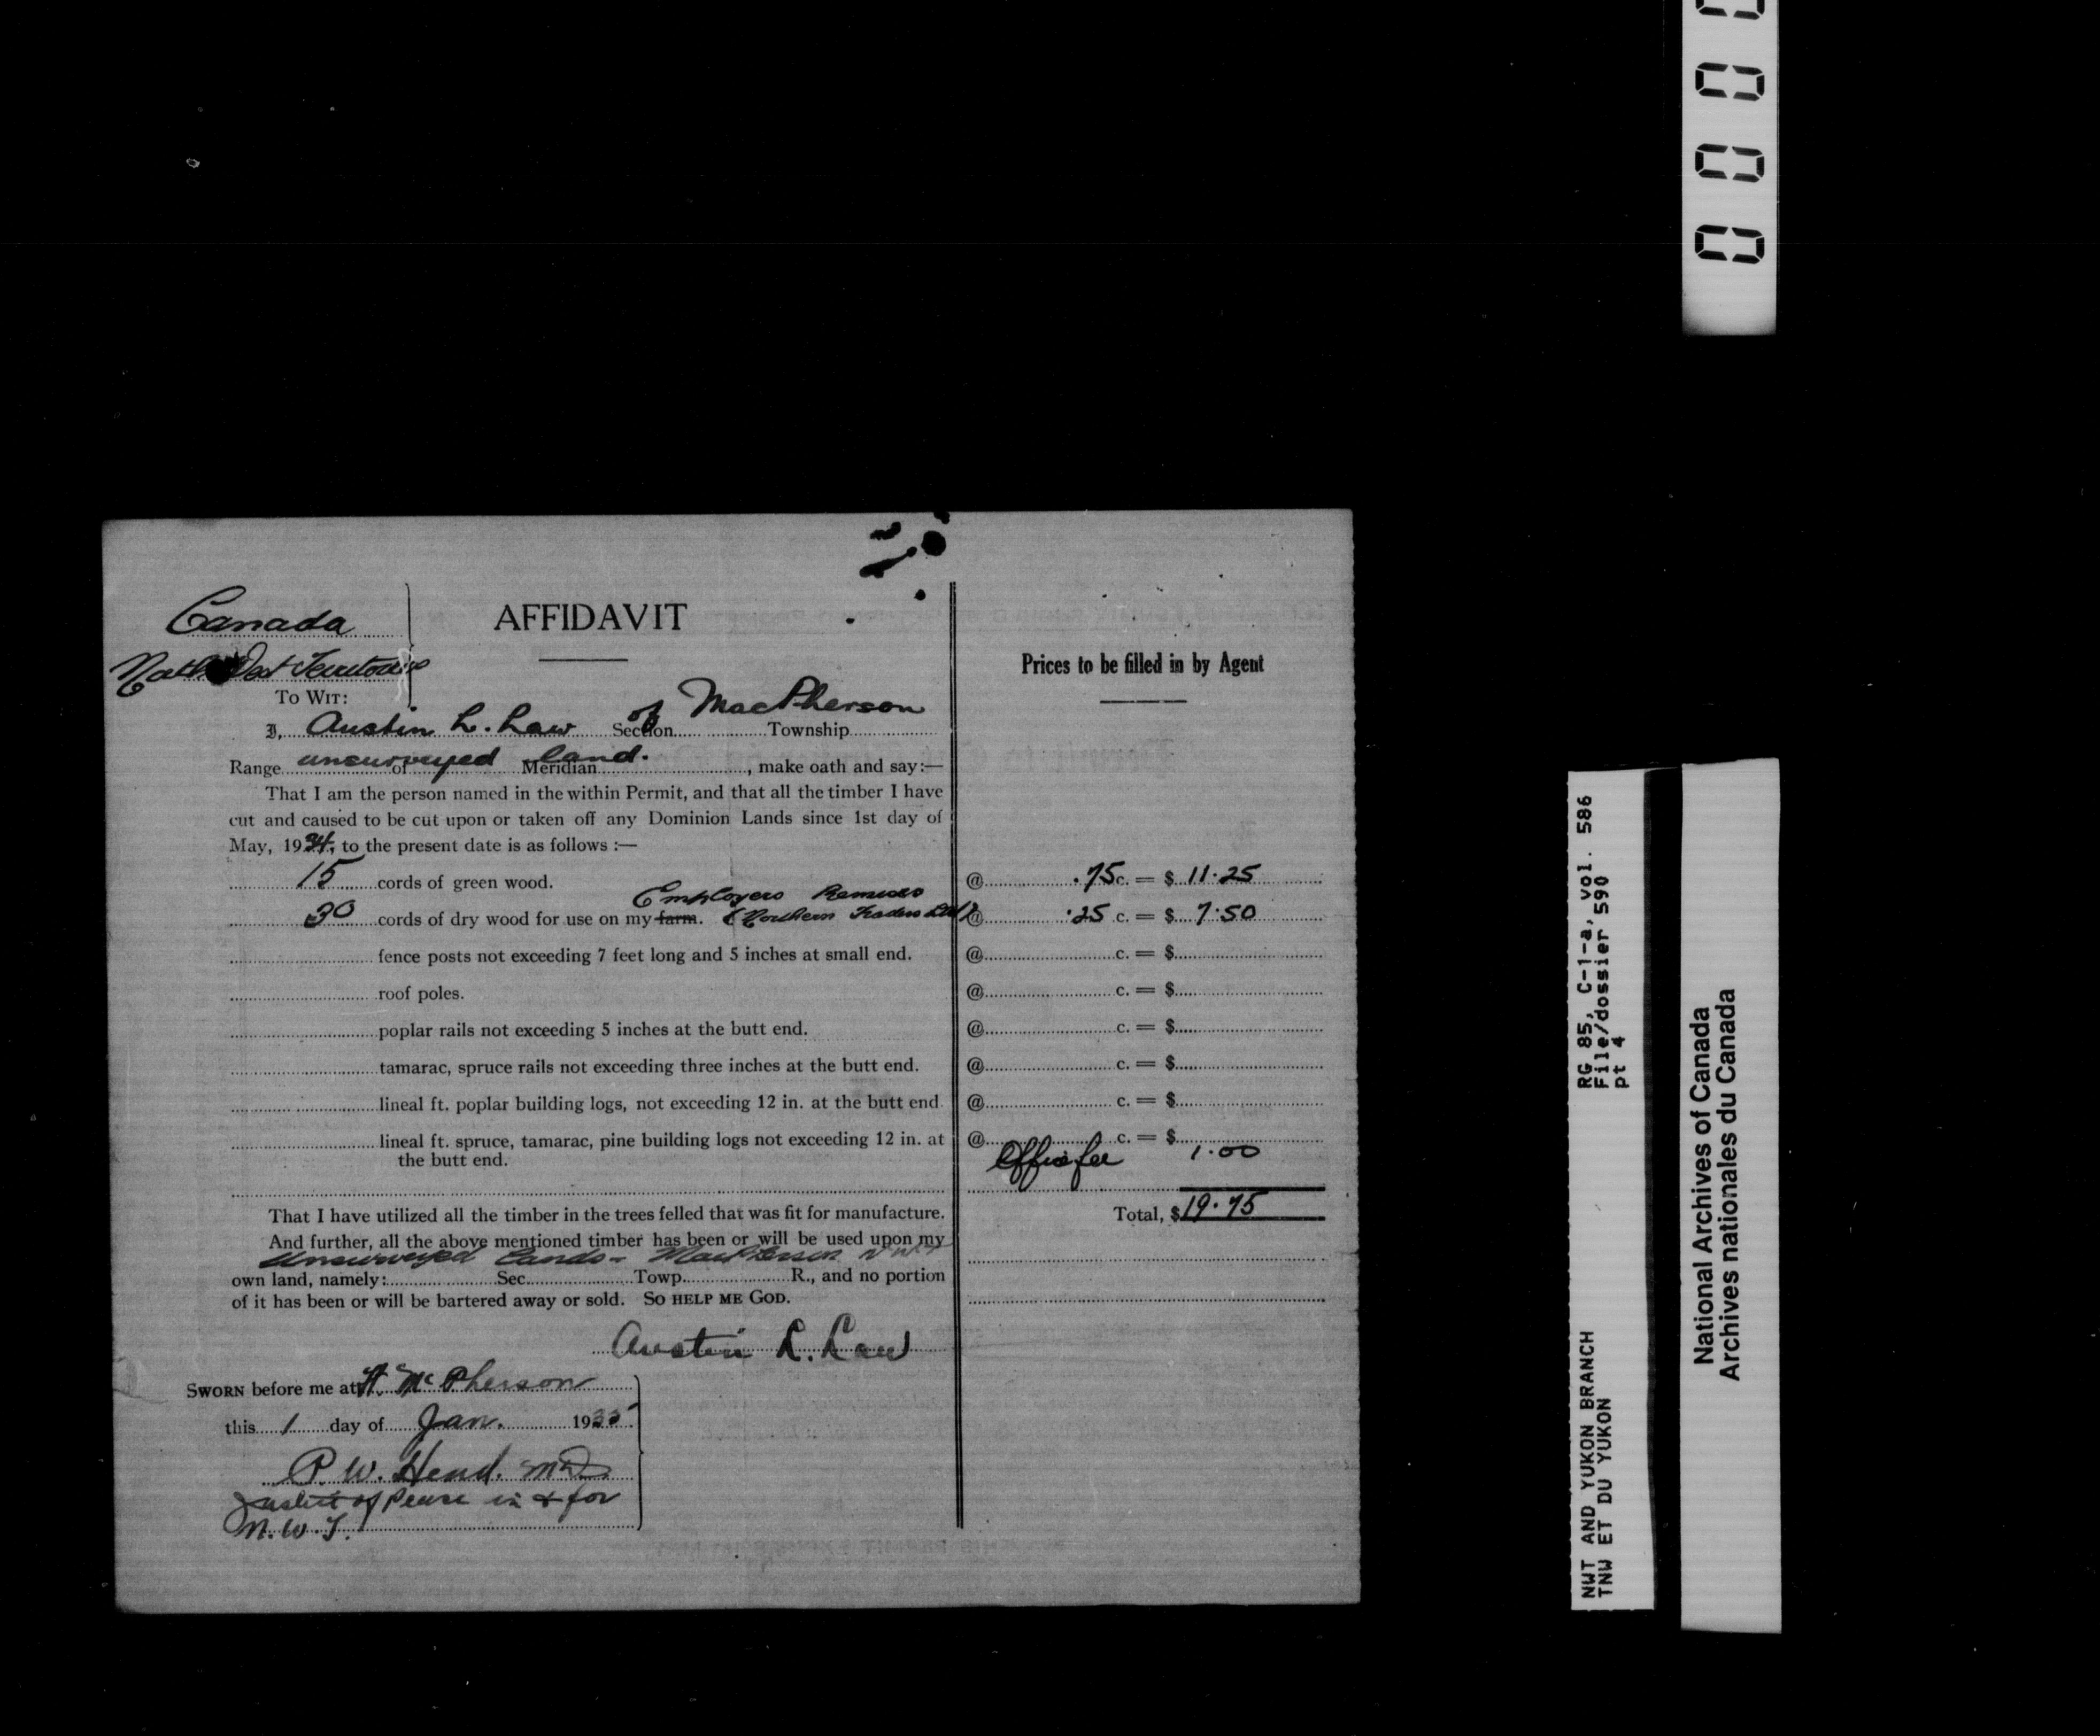 Canada
AFFIDAVIT
North West Territories
Prices to be filled in by Agent
TO WIT:
of MacPherson
I, Austin L. Law Section Township
unsurveyed land.
Range of Meridian , make oath and say:—
That I am the person named in the within Permit, and that all the timber I have
cut and caused to be cut upon or taken off any Dominion Lands since 1st day of
May, 1934, to the present date is as follows :—
15 cords of green wood. @ .75c. = $ 11.25
Employers
30 cords of dry wood for use on my farm. (Northern Traders Ltd) @ .25 c. = $ 7.50
fence posts not exceeding 7 feet long and 5 inches at small end. @ c. = $
roof poles. @ c. = $
poplar rails not exceeding 5 inches at the butt end. @ c. = $
tamarac, spruce rails not exceeding three inches at the butt end. @ c. = $
lineal ft. poplar building logs, not exceeding 12 in. at the butt end @ c. = $
lineal ft. spruce, tamarac, pine building logs not exceeding 12 in. at @ c. = $
the butt end. Office fee 1.00
That I have utilized all the timber in the trees felled that was fit for manufacture. Total, $ 19.75
And further, all the above mentioned timber has been or will be used upon my
Unsurveyed Lands - MacPherson
own land, namely: Sec. Towp. R., and no portion
of it has been or will be bartered away or sold. SO HELP ME GOD.
Austin L. Law
SWORN before me at Ft. McPherson
this 1 day of Jan. 1935
P. W. Head. MD
Justice of Peace in & for
N. W. T.
0 0 0 0
RG 85, C-1-a, vol. 586
File/dossier 590
pt 4
NWT AND YUKON BRANCH
TNW ET DU YUKON
National Archives of Canada
Archives nationales du Canada